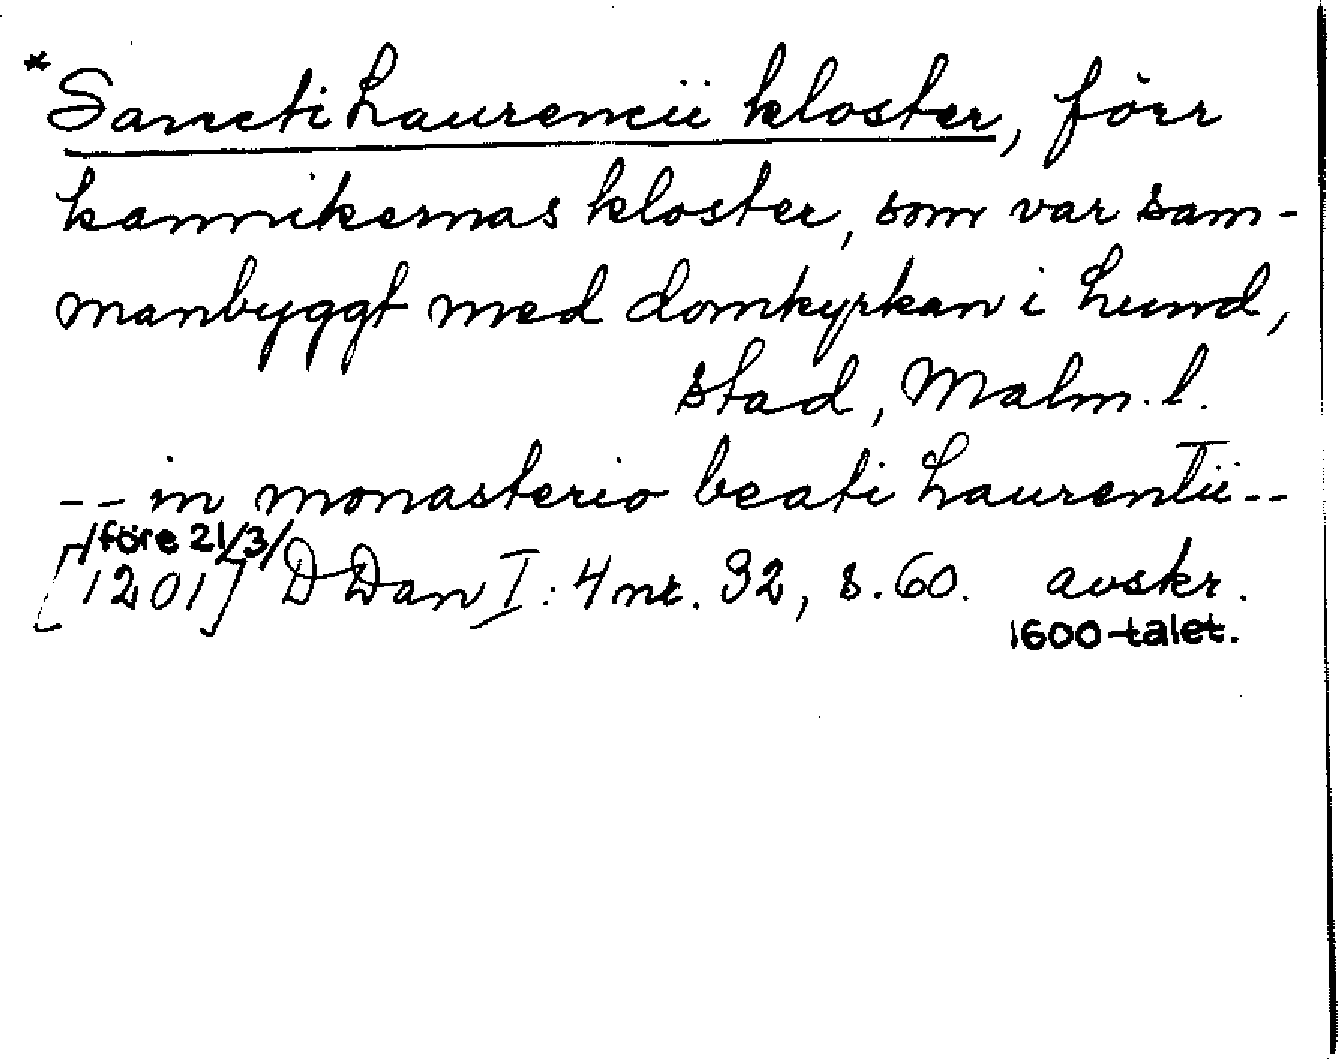 *Sancti Laurencii kloster, förr
kannikernas kloster, som var sam-
manbyggt med domkyrkan i Lund,
stad, Malm. l.
-- in monasterio beati Laurentii --
/före 21/3/
[1201] DDan I:4 nr. 32, s. 60. avskr.
1600-talet.